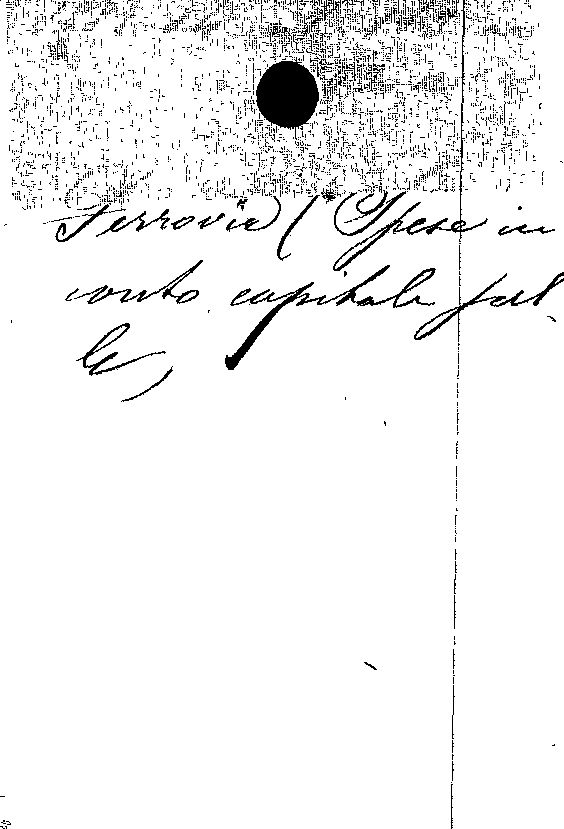 Ferrovie (Spese in
conto capitale per
le)